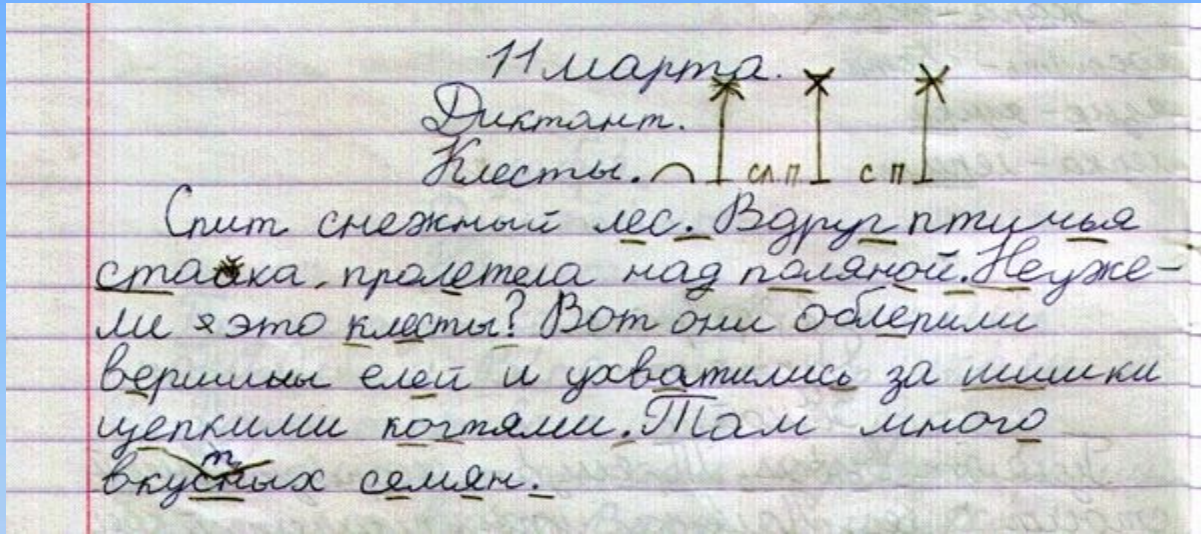 11 марта.
Диктант.
Клесты. сл. п с п
Спит снежный лес. Вдруг птичья
стайка пролетела над поляной. Неуже-
ли это клесты? Вот они облепили
вершины елей и ухватились за шишки
цепкими когтями. Там много
вкусных семян.